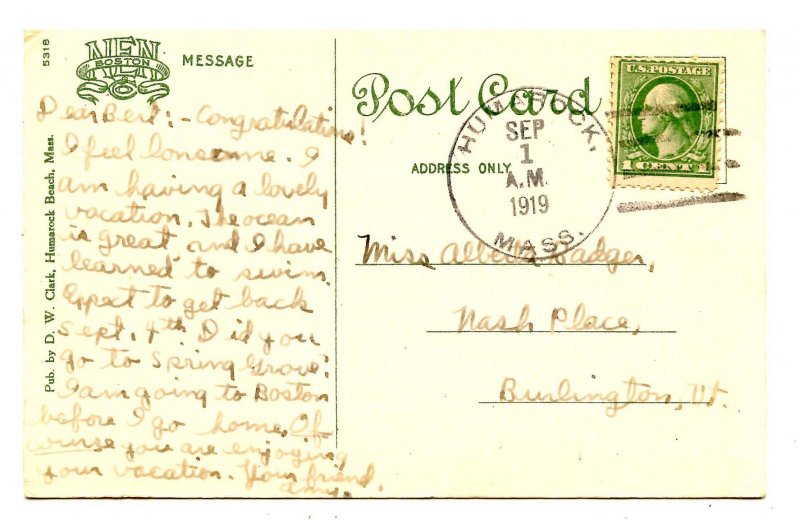 5318
NEN
BOSTON
MESSAGE
Pub. by D. W. Clark, Humarock Beach, Mass.
Dear Bert:- Congratulations!
I feel lonesome. I
am having a lovely
vacation. The ocean
is great and I have
learned to swim.
Expect to get back
Sept. 4th. Did you
go to Spring Grove?
I am going to Boston
before I go home. Of
course you are enjoying
your vacation. Your friend,
Amy.
Post Card
ADDRESS ONLY
HUMAROCK,
SEP
1
A.M.
1919
MASS.
U.S. POSTAGE
1 CENT 1
Miss Alberta Badger,
Nash Place,
Burlington, Vt.